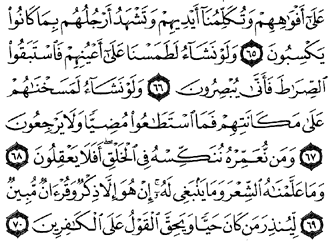 عَلَىٰٓ أَفْوَٰهِهِمْ وَتُكَلِّمُنَآ أَيْدِيهِمْ وَتَشْهَدُ أَرْجُلُهُم بِمَا كَانُوا۟
يَكْسِبُونَ ٦٥ وَلَوْ نَشَآءُ لَطَمَسْنَا عَلَىٰٓ أَعْيُنِهِمْ فَٱسْتَبَقُوا۟
ٱلصِّرَٰطَ فَأَنَّىٰ يُبْصِرُونَ ٦٦ وَلَوْ نَشَآءُ لَمَسَخْنَٰهُمْ
عَلَىٰ مَكَانَتِهِمْ فَمَا ٱسْتَطَٰعُوا۟ مُضِيًّا وَلَا يَرْجِعُونَ
٦٧ وَمَن نُّعَمِّرْهُ نُنَكِّسْهُ فِى ٱلْخَلْقِ ۖ أَفَلَا يَعْقِلُونَ ٦٨
وَمَا عَلَّمْنَٰهُ ٱلشِّعْرَ وَمَا يَنۢبَغِى لَهُۥٓ ۚ إِنْ هُوَ إِلَّا ذِكْرٌ وَقُرْءَانٌ مُّبِينٌ
٦٩ لِّيُنذِرَ مَن كَانَ حَيًّا وَيَحِقَّ ٱلْقَوْلُ عَلَى ٱلْكَٰفِرِينَ ٧٠